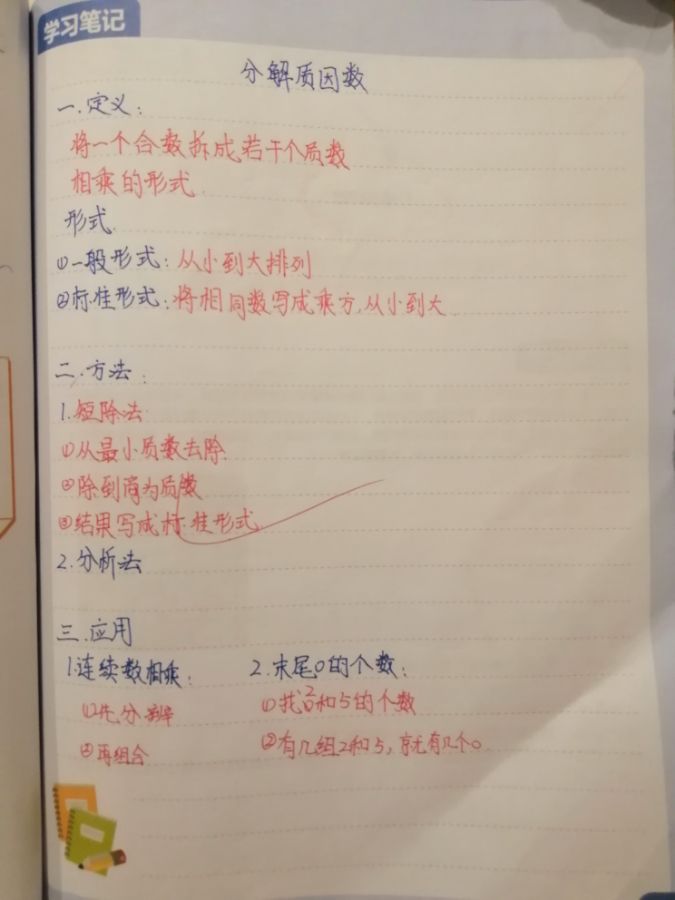 学习笔记
分解质因数
一.定义:
将一个合数拆成若干个质数
相乘的形式.
形式.
①一般形式:从小到大排列
②标准形式:将相同数写成乘方,从小到大
二.方法:
1.短除法
①从最小质数去除.
②除到商为质数
③结果写成标准形式
2.分析法
三.应用
1.连续数相乘: 2.末尾0的个数:
①先分解 ①找2和5的个数
②再组合 ②有几组2和5,就有几个0.